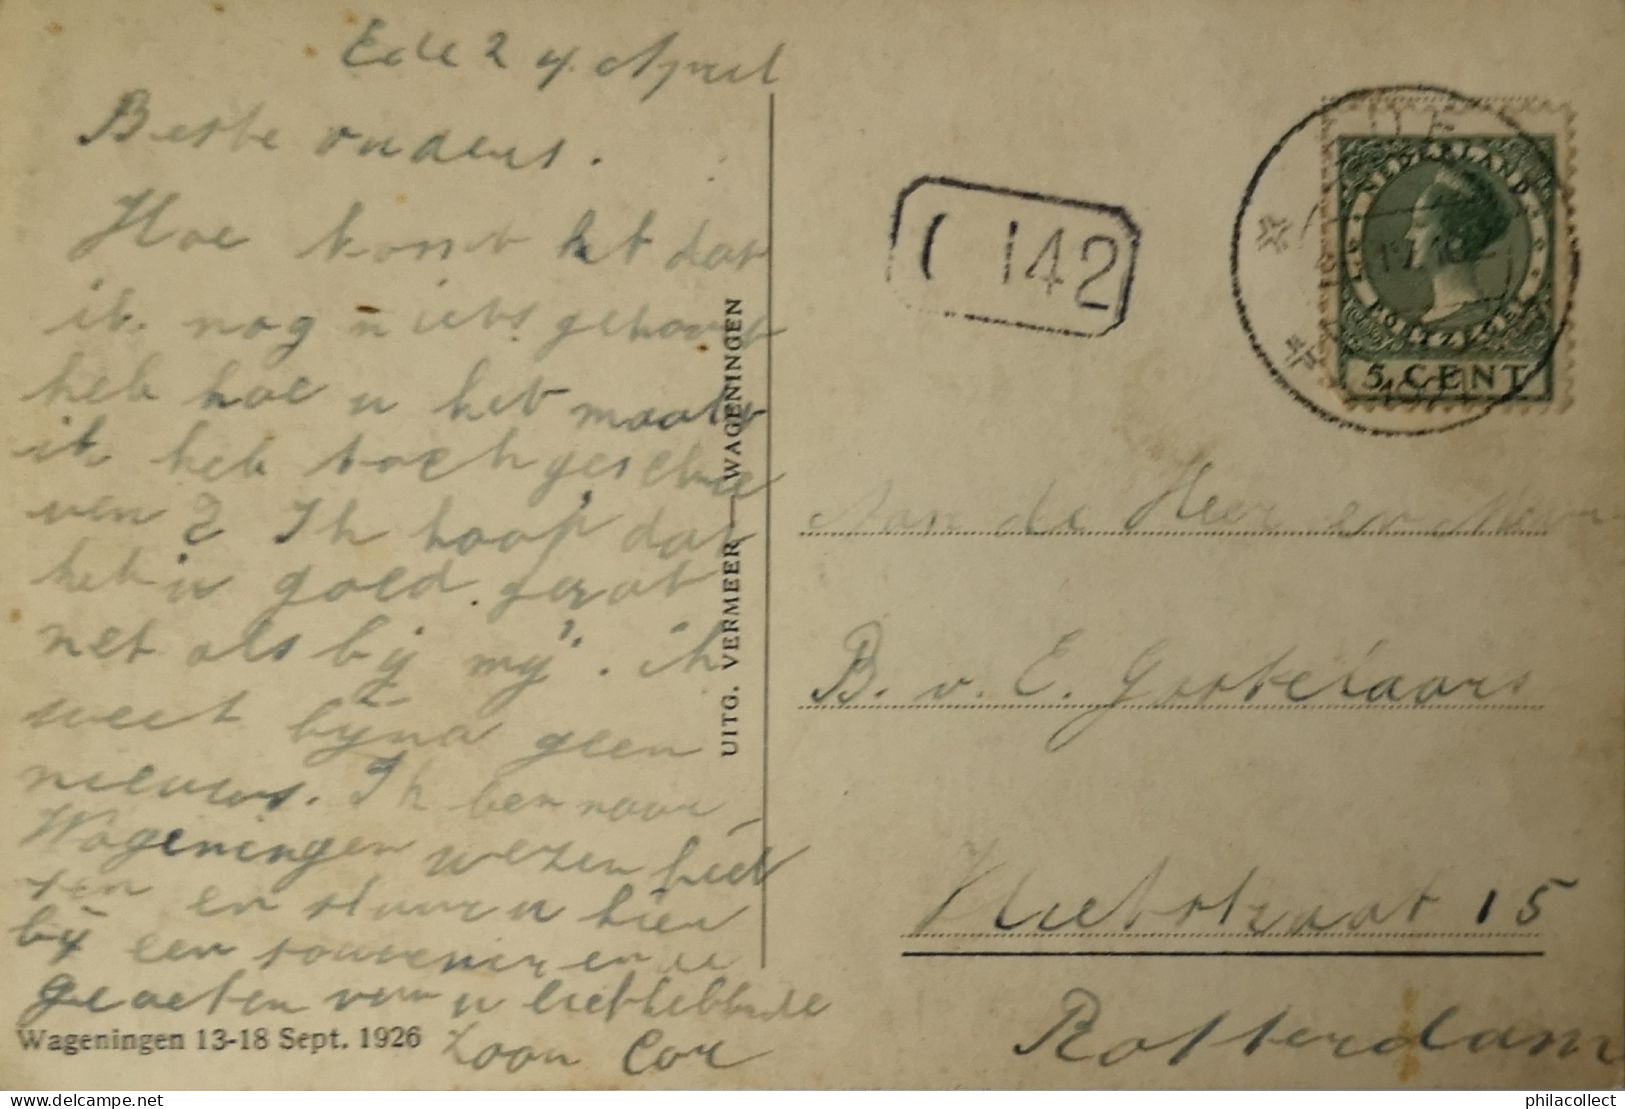 Ede 24 April
Beste ouders.
Hoe komt het dat
ik nog niets gehoort
heb hoe u het maakt
ik heb toch geschre
ven? Ik hoop dat
het u goed gaat
net als bij mij. ik
weet bijna geen
nieuws. Ik ben naar
Wageningen wezen fiet
sen en stuur u hier
bij een souvenir en u
groeten van u liefhebbende
Zoon Cor
Wageningen 13-18 Sept. 1926
UITG. VERMEER — WAGENINGEN
142
NEDERLAND
POSTZEGEL
5 CENT
Aan de Heer en Mevr
B. v. E. Gostelaars
Vlietstraat 15
Rotterdam
philacollect
© delcampe.net